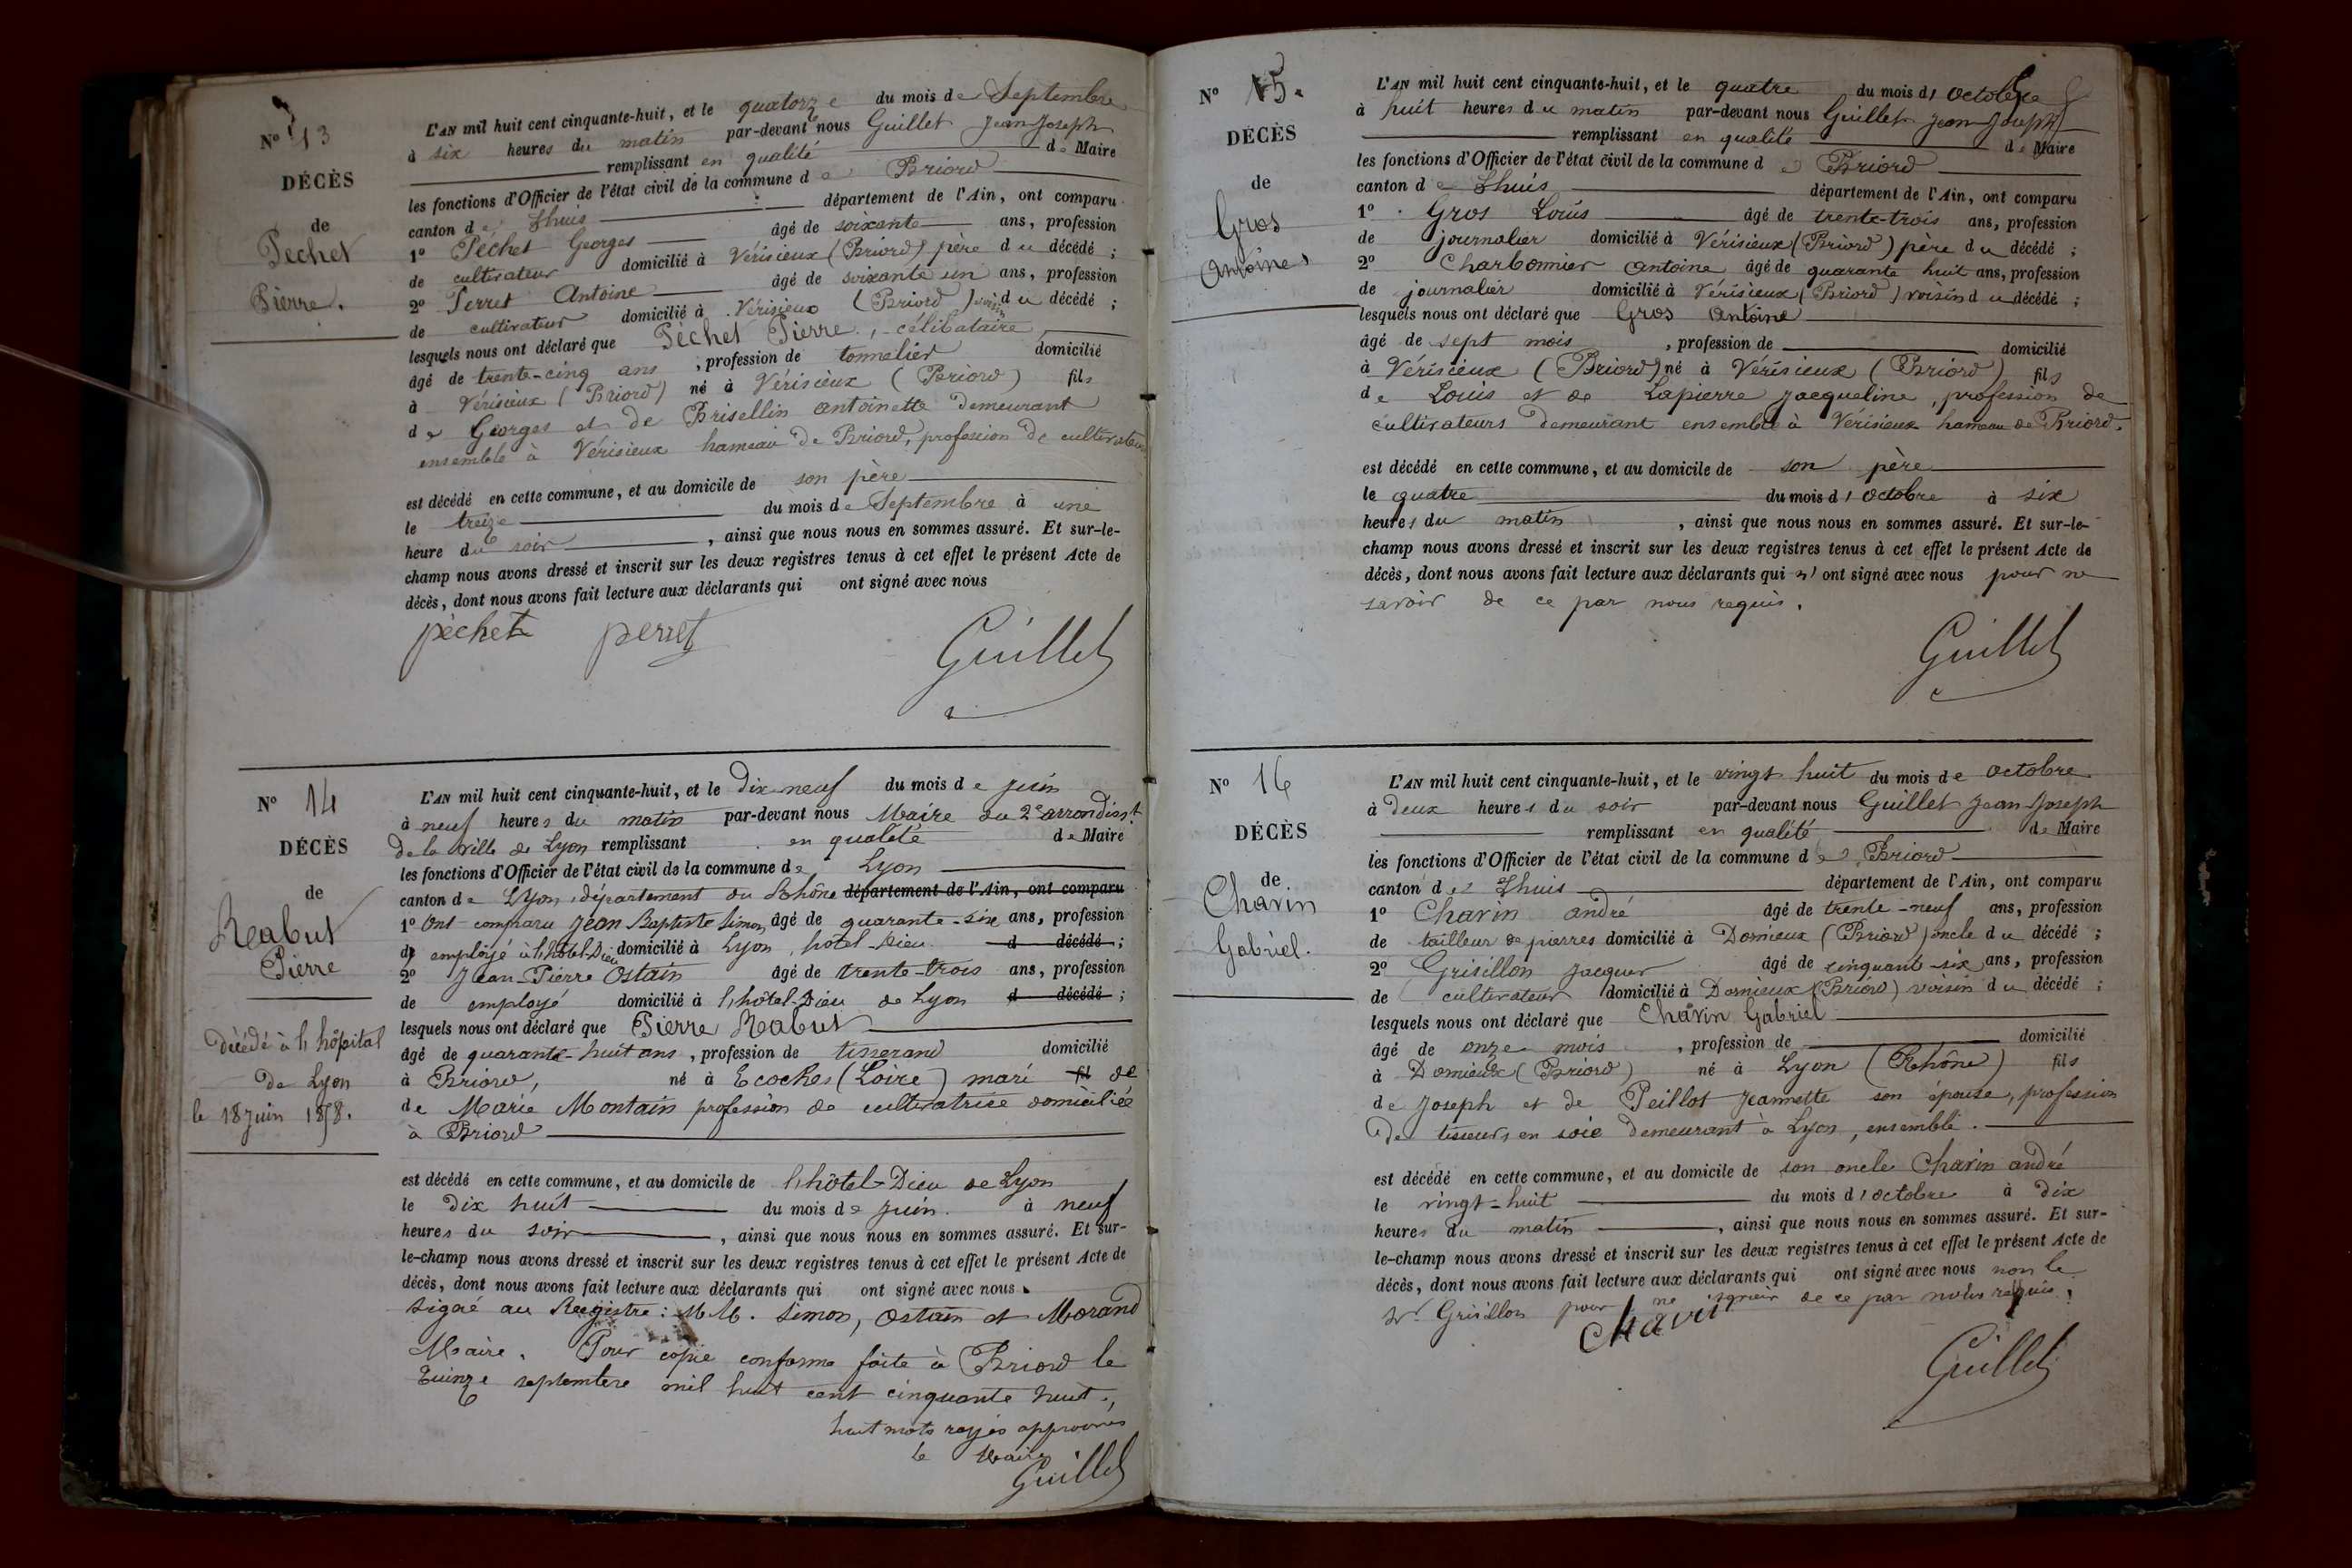 Nº 13
DÉCÈS
de
Pechet
Pierre.
L'AN mil huit cent cinquante-huit, et le quatorze du mois de Septembre
à six heures du matin par-devant nous Guillet Jean Joseph
remplissant en qualité de Maire
les fonctions d'Officier de l'état civil de la commune de Briord
canton de Lhuis département de l'Ain, ont comparu
1º Péchet Georges âgé de soixante ans, profession
de cultivateur domicilié à Vérisieux (Briord) père du décédé ;
2º Perret Antoine âgé de soixante un ans, profession
de cultivateur domicilié à Vérisieux (Briord) voisin du décédé ;
lesquels nous ont déclaré que Péchet Pierre, célibataire
âgé de trente-cinq ans, profession de tonnelier domicilié
à Vérisieux (Briord) né à Vérisieux (Briord) fils
de Georges et de Brisellin antoinette demeurant
ensemble à Vérisieux hameau de Briord, profession de cultivateurs
est décédé en cette commune, et au domicile de son père
le treize du mois de Septembre à une
heure du soir, ainsi que nous nous en sommes assuré. Et sur-le-
champ nous avons dressé et inscrit sur les deux registres tenus à cet effet le présent Acte de
décès, dont nous avons fait lecture aux déclarants qui ont signé avec nous
pèchet perret Guillet
Nº 14
DÉCÈS
de
Rabut
Pierre
Décédé à l'hôpital
de Lyon
le 18 juin 1858.
L'AN mil huit cent cinquante-huit, et le Dix neuf du mois de juin
à neuf heures du matin par-devant nous Maire du 2e arrondisst
de la ville de Lyon remplissant en qualité de Maire
les fonctions d'Officier de l'état civil de la commune de Lyon
canton de Lyon, département du Rhône département de l'Ain, ont comparu
1º Ont comparu Jean Baptiste Simon, âgé de quarante-six ans, profession
de employé à l'hôtel-Dieu domicilié à Lyon, hôtel-Dieu d décédé ;
2º Jean Pierre Ostain âgé de trente-trois ans, profession
de employé domicilié à l'hôtel-Dieu de Lyon d décédé ;
lesquels nous ont déclaré que Pierre Rabut
âgé de quarante-huit ans, profession de tisserand domicilié
à Briord, né à Ecoches (Loire) mari fil de
de Marie Montain profession de cultivatrice domiciliée
à Briord
est décédé en cette commune, et au domicile de l'hôtel-Dieu de Lyon
le Dix huit du mois de juin. à neuf
heures du soir, ainsi que nous nous en sommes assuré. Et sur-
le-champ nous avons dressé et inscrit sur les deux registres tenus à cet effet le présent Acte de
décès, dont nous avons fait lecture aux déclarants qui ont signé avec nous.
Signé au Registre : MM. Simon, Ostain et Morand
Maire. Pour copie conforme faite à Briord le
Quinze septembre mil huit cent cinquante huit.,
huit mots rayés approuvés
le Maire
Guillet
Nº 15.
DÉCÈS
de
Gros
Antoine
L'AN mil huit cent cinquante-huit, et le quatre du mois d'octobre
à huit heures du matin par-devant nous Guillet Jean Joseph
remplissant en qualité de Maire
les fonctions d'Officier de l'état civil de la commune de Briord
canton de Lhuis département de l'Ain, ont comparu
1º Gros Louis âgé de trente-trois ans, profession
de journalier domicilié à Vérisieux (Briord) père du décédé ;
2º Charbonnier Antoine âgé de quarante huit ans, profession
de journalier domicilié à Vérisieux (Briord) voisin du décédé ;
lesquels nous ont déclaré que Gros Antoine
âgé de sept mois, profession de domicilié
à Vérisieux (Briord) né à Vérisieux (Briord) fils
de Louis et de Lapierre Jacqueline, profession de
cultivateurs demeurant ensemble à Vérisieux hameau de Briord.
est décédé en cette commune, et au domicile de son père
le quatre du mois d'octobre à six
heures du matin, ainsi que nous nous en sommes assuré. Et sur-le-
champ nous avons dressé et inscrit sur les deux registres tenus à cet effet le présent Acte de
décès, dont nous avons fait lecture aux déclarants qui n'ont signé avec nous pour ne
savoir de ce par nous requis.
Guillet
Nº 16
DÉCÈS
de
Charin
Gabriel.
L'AN mil huit cent cinquante-huit, et le vingt huit du mois de octobre
à deux heures du soir par-devant nous Guillet Jean Joseph
remplissant en qualité de Maire
les fonctions d'Officier de l'état civil de la commune de Briord
canton de Lhuis département de l'Ain, ont comparu
1º Charin andré âgé de trente-neuf ans, profession
de tailleur de pierres domicilié à Dornieux (Briord) oncle du décédé ;
2º Grisillon Jacques âgé de cinquante-six ans, profession
de cultivateur domicilié à Dornieux (Briord) voisin du décédé ;
lesquels nous ont déclaré que Charin Gabriel
âgé de onze mois, profession de domicilié
à Dornieux (Briord) né à Lyon (Rhône) fils
de Joseph et de Peillot Jeannette son épouse, profession
de tisseurs en soie demeurant à Lyon, ensemble.
est décédé en cette commune, et au domicile de son oncle Charin andré
le vingt-huit du mois d'octobre à dix
heures du matin, ainsi que nous nous en sommes assuré. Et sur-
le-champ nous avons dressé et inscrit sur les deux registres tenus à cet effet le présent Acte de
décès, dont nous avons fait lecture aux déclarants qui ont signé avec nous non le
Sr. Grisillon pour ne savoir de ce par nous requis.
Guillet